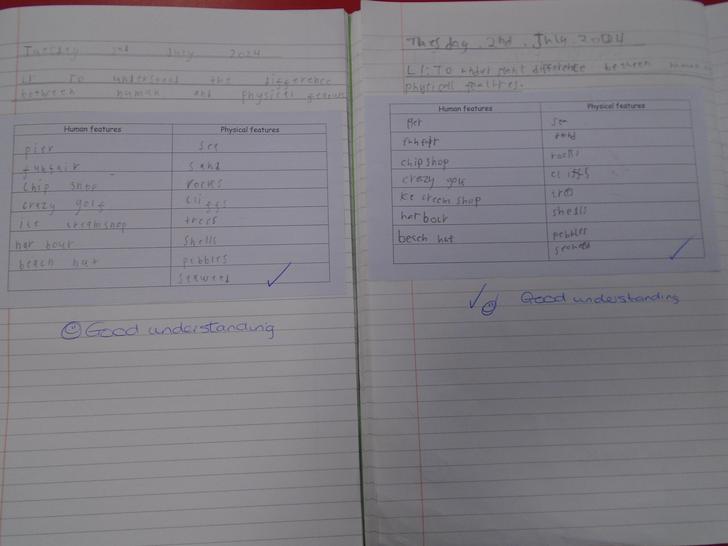 Tuesday 2nd July 2024
LI To understand the difference
between human and physical
Human features Physical features
pier sea
funfair sand
chip shop rocks
crazy golf cliffs
ice creamshop trees
har bour shells
beach hut pebbles
seaweed
Good understanding
Tuesday 2nd July 2024
LI: To difference between human
physicall
Human features Physical features
sea
sand
chip shop rocks
crazy cliffs
ice cream shop
harbour shells
beach hut pebbles
Good understanding